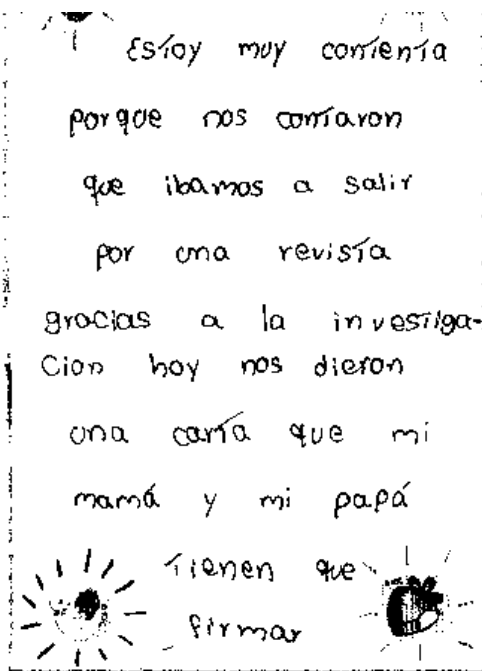 Estoy muy contenta
porque nos contaron
que ibamos a salir
por una revista
gracias a la investiga-
cion hoy nos dieron
una carta que mi
mamá y mi papá
tienen que
firmar